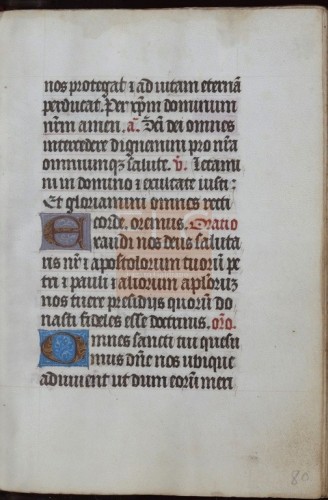 nos protegat & ad uitam eternā
perducat. Per xp̄m dominum
nr̄m amen. a͞. Sc̄i dei omnes
intercedere dignemini pro nr̄a
omniumqȝ salute. v̄. Letami
ni in domino & exultate iusti:
Et gloriamini omnes recti
corde. oremus. Oratio
Exaudi nos deus saluta
ris nr̄ & apostolorum tuorū pe
tri & pauli & aliorum aplorꝫ
nos tuere presidijs quorū do
nasti fideles esse doctrinis. oro.
Omnes sancti tui quesu
mus dn̄e nos ubique
adiuuent ut dum eorū meri
80